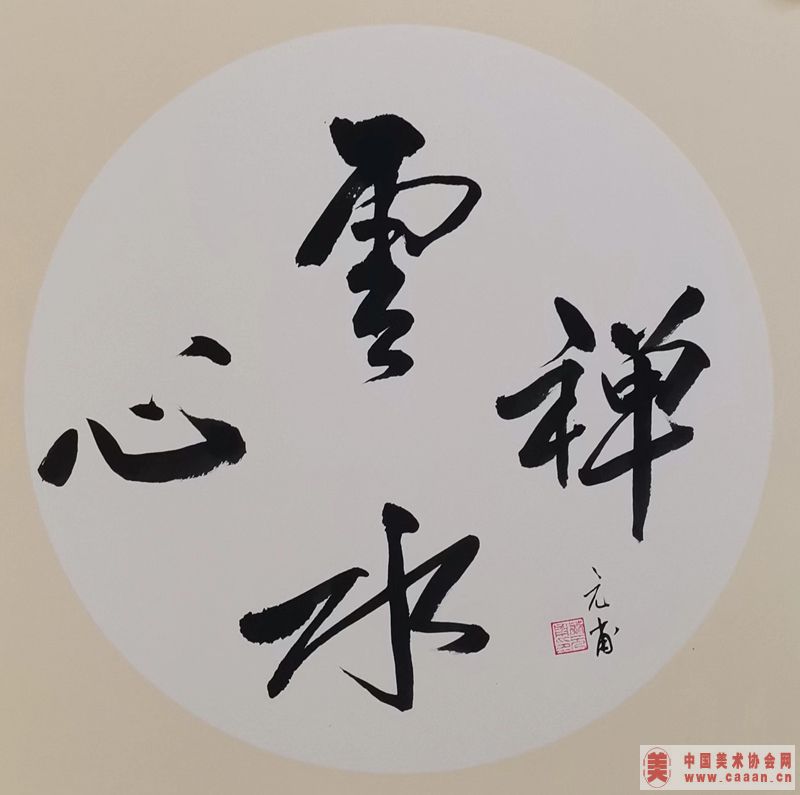 雲水
禅
心
元甫
中国美术协会网
美
www.caaan.cn